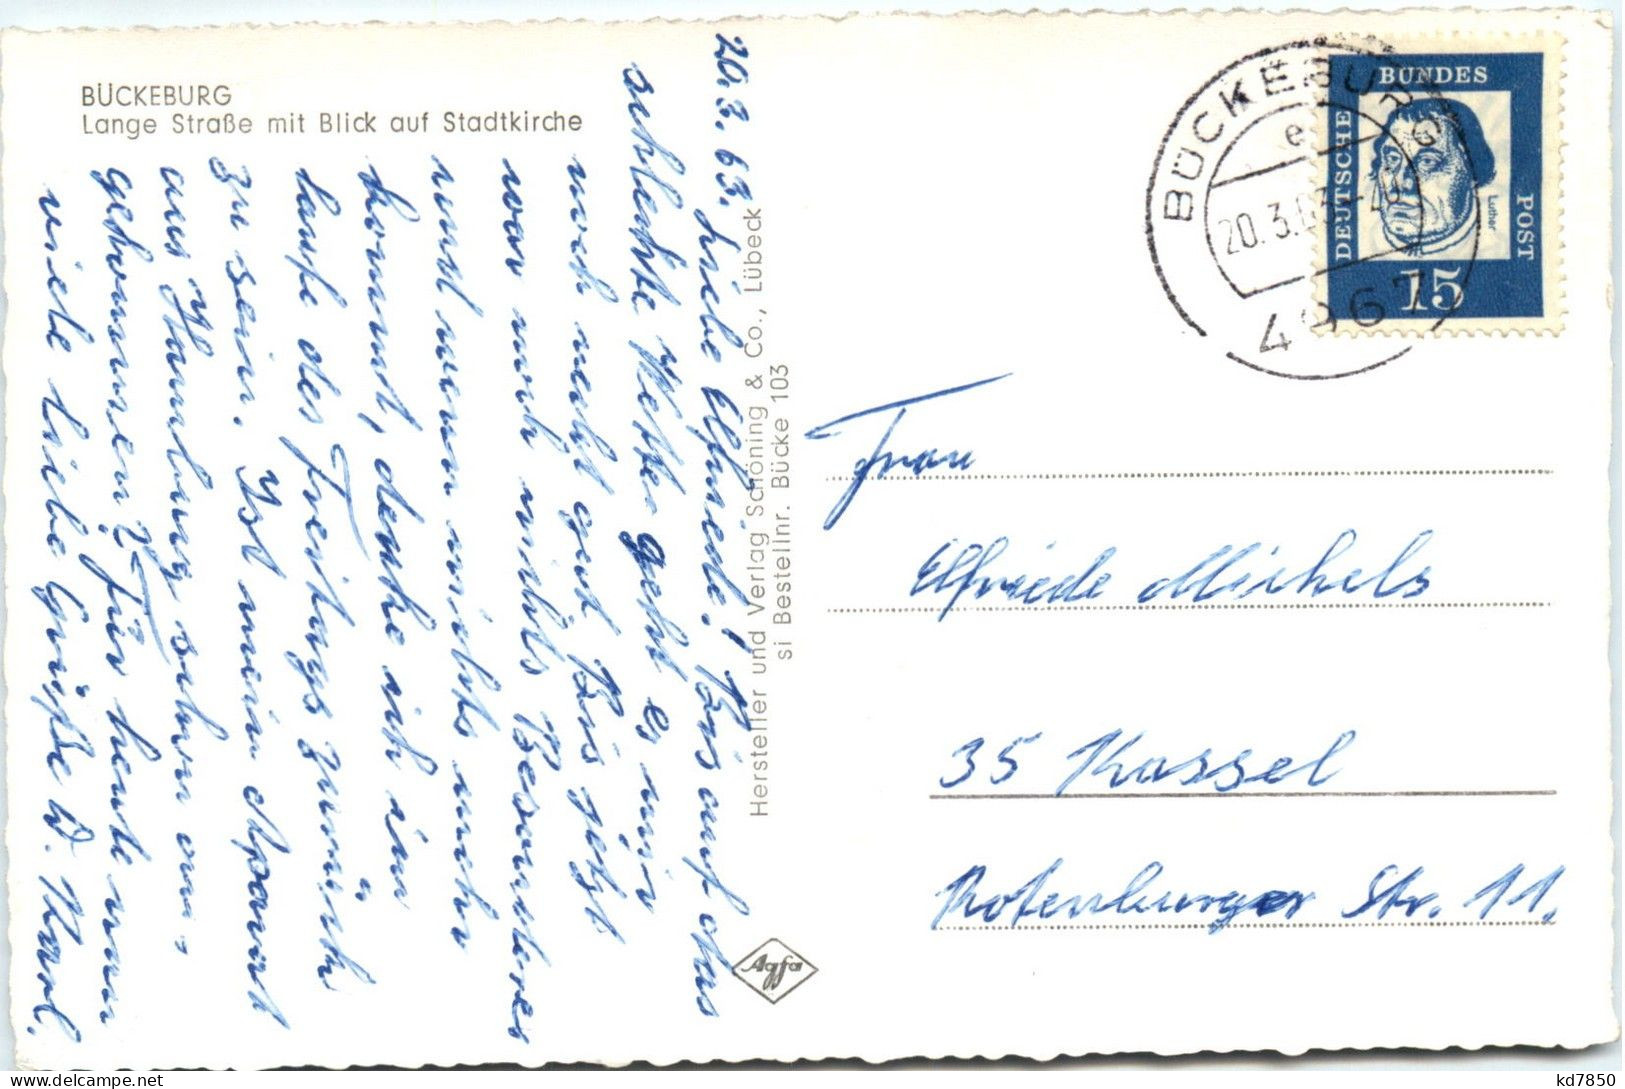 BÜCKEBURG
Lange Straße mit Blick auf Stadtkirche
20.3.63. Liebe Elfriede! Bis auf das
schlechte Wetter geht es mir
noch recht gut. Bis jetzt
war noch nichts Besonderes
und wenn nichts mehr
kommt, denke ich im
Laufe des Freitags zurück
zu sein. Ist mein Apparat
aus Hamburg schon an-
gekommen? Für heute nun
viele liebe Grüße D. Karl.
Hersteller und Verlag Schöning & Co., Lübeck
si Bestellnr. Bücke 103
Agfa
BÜCKEBURG
e
20.3.63
4967
DEUTSCHE
BUNDES
POST
Luther
15
Frau
Elfriede Michels
35 Kassel
Rotenburger Str. 11.
kd7850